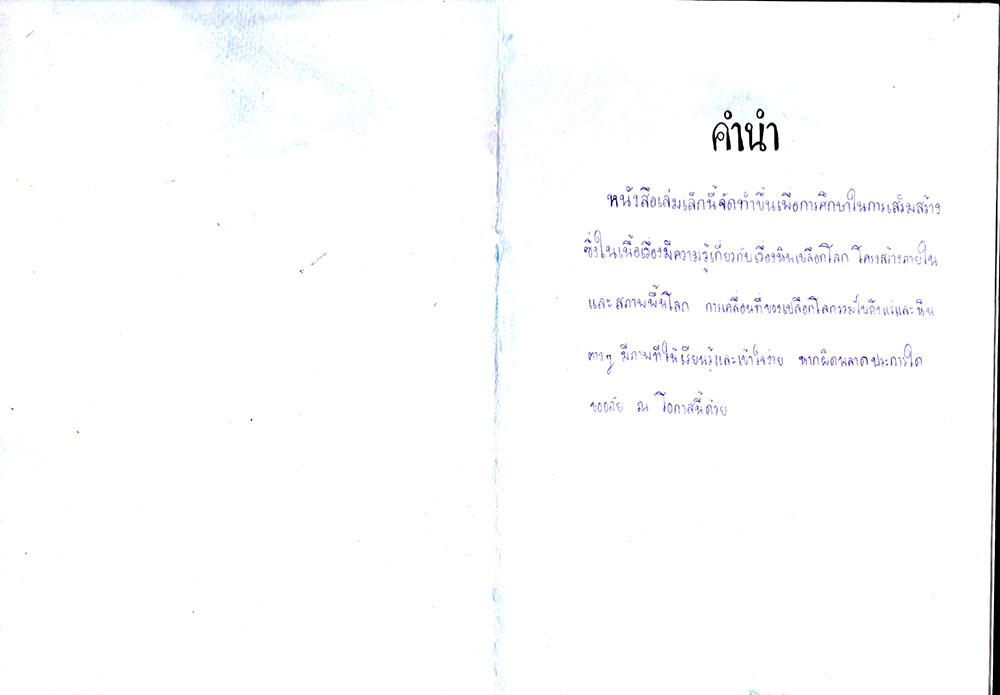 คำนำ
หนังสือเล่มเล็กนี้จัดทำขึ้นเพื่อการศึกษาในการเสริมสร้าง
ซึ่งในเนื้อเรื่องมีความรู้เกี่ยวกับเรื่องหินเปลือกโลก โครงสร้างภายใน
และสภาพพื้นโลก การเคลื่อนที่ของเปลือกโลกรวมไปถึงแร่และหิน
ต่างๆ มีภาพที่ให้เรียนรู้และเข้าใจง่าย หากผิดพลาดประการใด
ขออภัย ณ โอกาสนี้ด้วย